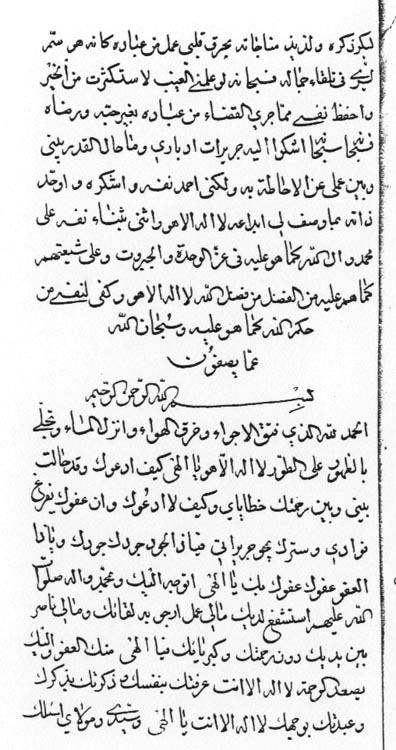 ليكر ذكره ولذيذ مناجاته بحرق قلبي عمل من عباده كانه هو ستر
في تلقاء جماله فسبحانه لو علمني الغيب لاستكثرت من الخير
واحفظ نفسي مما جرى القضاء من عباده بغير حبه ورضاه
فسبحانه سبحانه اشكوا اليه جريرات ادباري وما حال القدر بيني
وبين عملي عن الاحاطة به ولكني احمد نفسه واشكره واوحد
ذاته بما وصف لي ابداعه لا اله الا هو واثني بثناء نفسه على
محمد وال الله كما هو عليه في عز الوحدة والجبروت وعلى شيعتهم
كما هم عليه من الفضل من فضل الله لا اله الا هو وكفى لنفسي من
حكم الله كما هو عليه وسبحان الله
عما يصفون
بسم الله الرحمن الرحيم
الحمد لله الذي فتق الاجواء وخرق الهواء وانزل الماء وتجلى
بالظهور على الطور لا اله الا هو يا الهي كيف ادعوك وقد حالت
بيني وبين رحمتك خطاياي وكيف لا ادعوك وان عفوك يفرغ
فؤادي وسترك يمحو جريراتي فيا ذا الجود جودك جودك ويا ذا
العفو عفوك عفوك بك يا الهي اتوجه اليك وبمحمد واله صلوات
الله عليهم استشفع لديك مالي عمل ارجى به لقائك ومالي ناصر
بين يديك دون رحمتك وكبريائك فيا الهي منك العفو واليك
يصعد كرحمة لا اله الا انت عرفتك بنفسك وذكرتك بذكرك
وعبدتك بوجهك لا اله الا انت يا الهي وسيدي ومولاي اسئلك